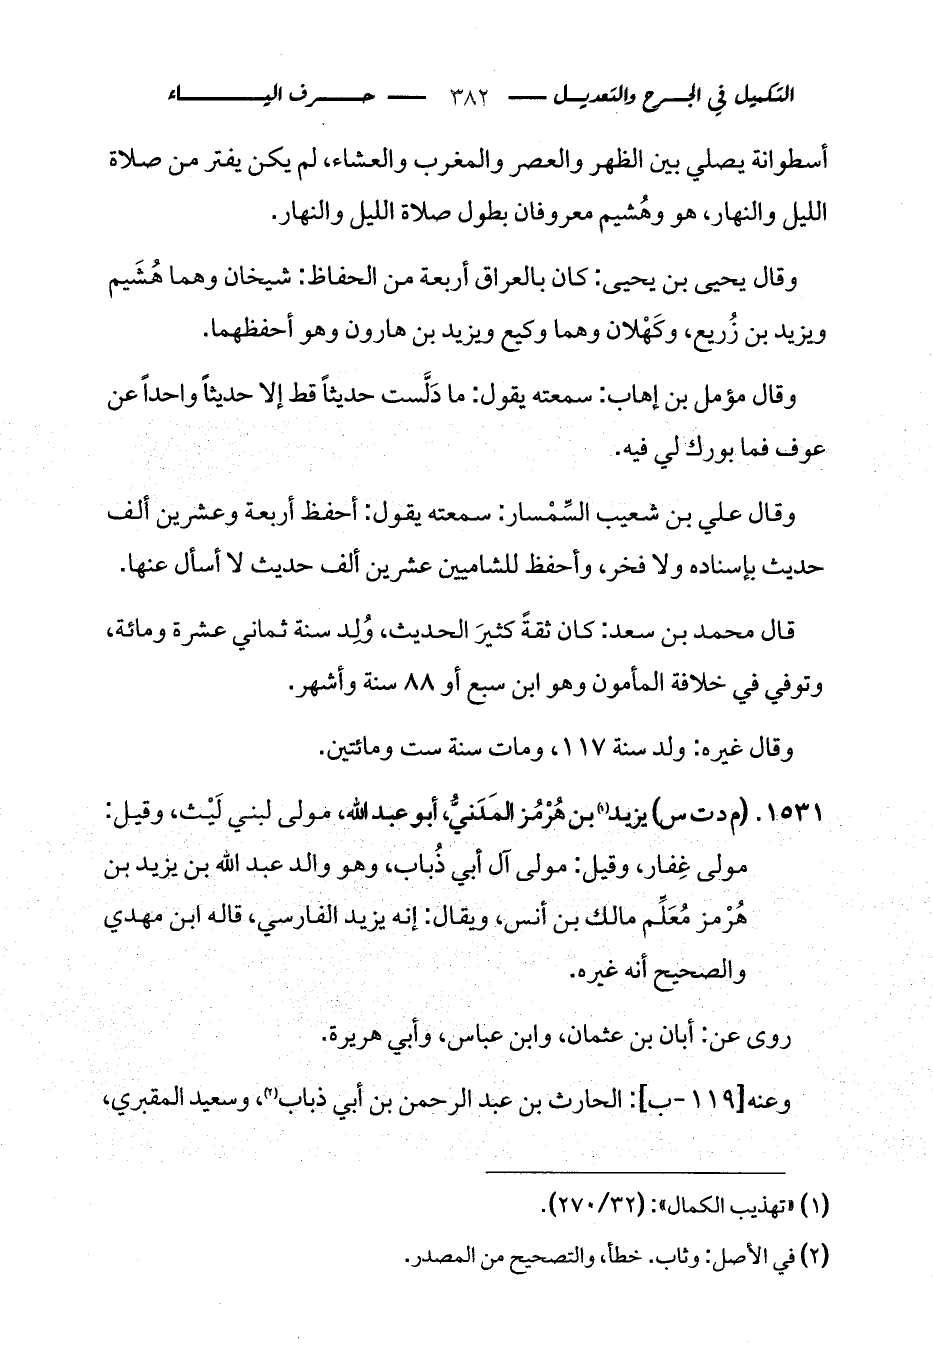 التكميل في الجرح والتعديل — ٣٨٢ — حرف الياء
أسطوانة يصلي بين الظهر والعصر والمغرب والعشاء، لم يكن يفتر من صلاة
الليل والنهار، هو وهُشيم معروفان بطول صلاة الليل والنهار.
وقال يحيى بن يحيى: كان بالعراق أربعة من الحفاظ: شيخان وهما هُشَيم
ويزيد بن زُريع، وكَهْلان وهما وكيع ويزيد بن هارون وهو أحفظهما.
وقال مؤمل بن إهاب: سمعته يقول: ما دَلَّست حديثاً قط إلا حديثاً واحداً عن
عوف فما بورك لي فيه.
وقال علي بن شعيب السِّمْسار: سمعته يقول: أحفظ أربعة وعشرين ألف
حديث بإسناده ولا فخر، وأحفظ للشاميين عشرين ألف حديث لا أسأل عنها.
قال محمد بن سعد: كان ثقةً كثيرَ الحديث، وُلِد سنة ثماني عشرة ومائة،
وتوفي في خلافة المأمون وهو ابن سبع أو ٨٨ سنة وأشهر.
وقال غيره: ولد سنة ١١٧، ومات سنة ست ومائتين.
١٥٣١. (م د ت س) يزيد(١) بن هُرْمُز المَدَنيُّ، أبو عبد الله، مولى لبني لَيْث، وقيل:
مولى غِفار، وقيل: مولى آل أبي ذُباب، وهو والد عبد الله بن يزيد بن
هُرْمز مُعَلِّم مالك بن أنس، ويقال: إنه يزيد الفارسي، قاله ابن مهدي
والصحيح أنه غيره.
روى عن: أبان بن عثمان، وابن عباس، وأبي هريرة.
وعنه[١١٩-ب]: الحارث بن عبد الرحمن بن أبي ذباب(٢)، وسعيد المقبري،
(١) «تهذيب الكمال»: (٣٢/ ٢٧٠).
(٢) في الأصل: وثاب. خطأ، والتصحيح من المصدر.